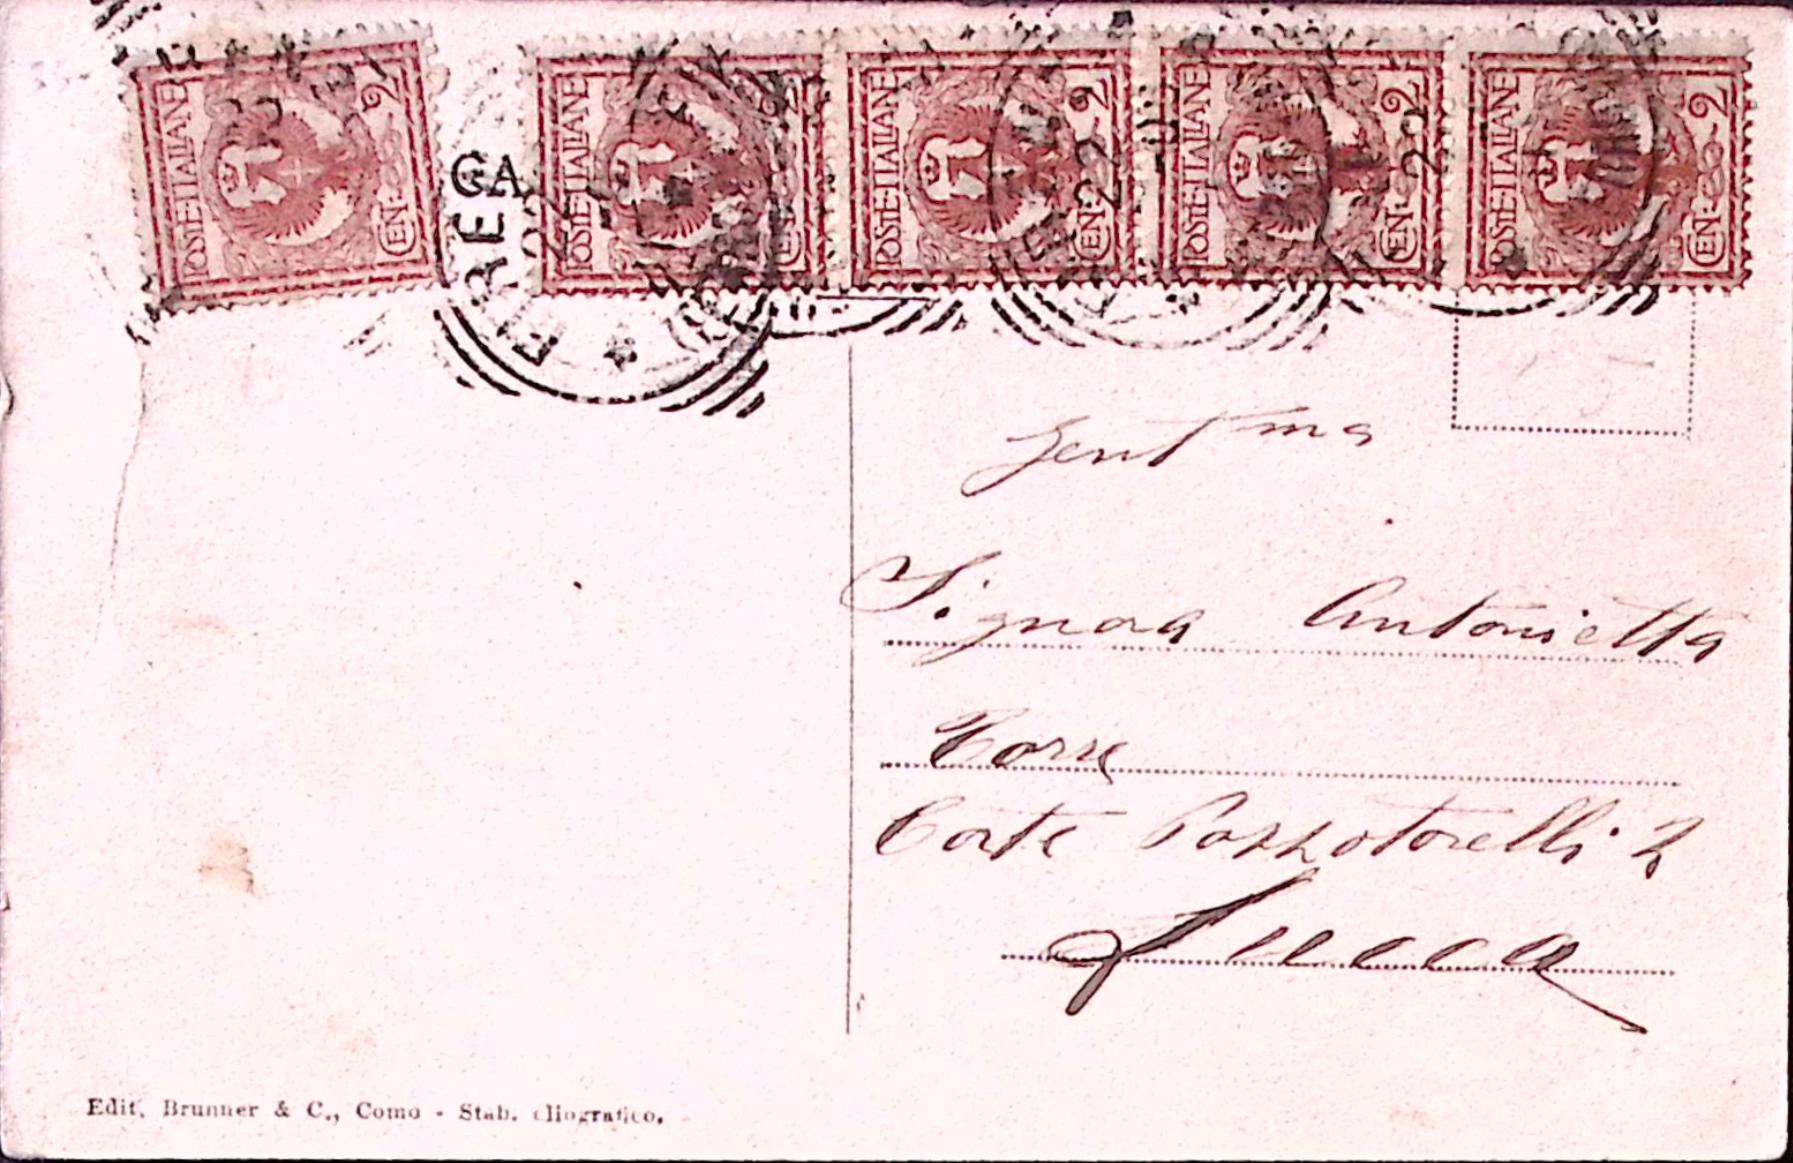 POSTE·ITALIANE CEN. 2
POSTE·ITALIANE CEN. 2
POSTE·ITALIANE CEN. 2
POSTE·ITALIANE CEN. 2
POSTE·ITALIANE CEN. 2
Gent ma
Signora Antonietta
Torre
Corte Pozzotorelli 2
Lucca
Edit. Brunner & C., Como - Stab. eliografico.